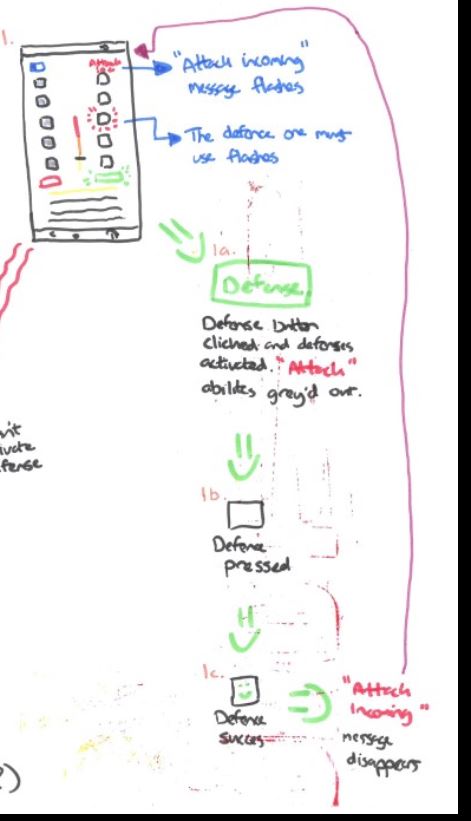 1.
"Attack incoming"
message flashes
The defence one must
use flashes
1a.
Defense
Defense button
clicked and defenses
activated. "Attack"
abilites grey'd out.
ivate
fense
1b.
Defence
pressed
1c.
Defence
succes
"Attack
Incoming"
message
disappears
?)